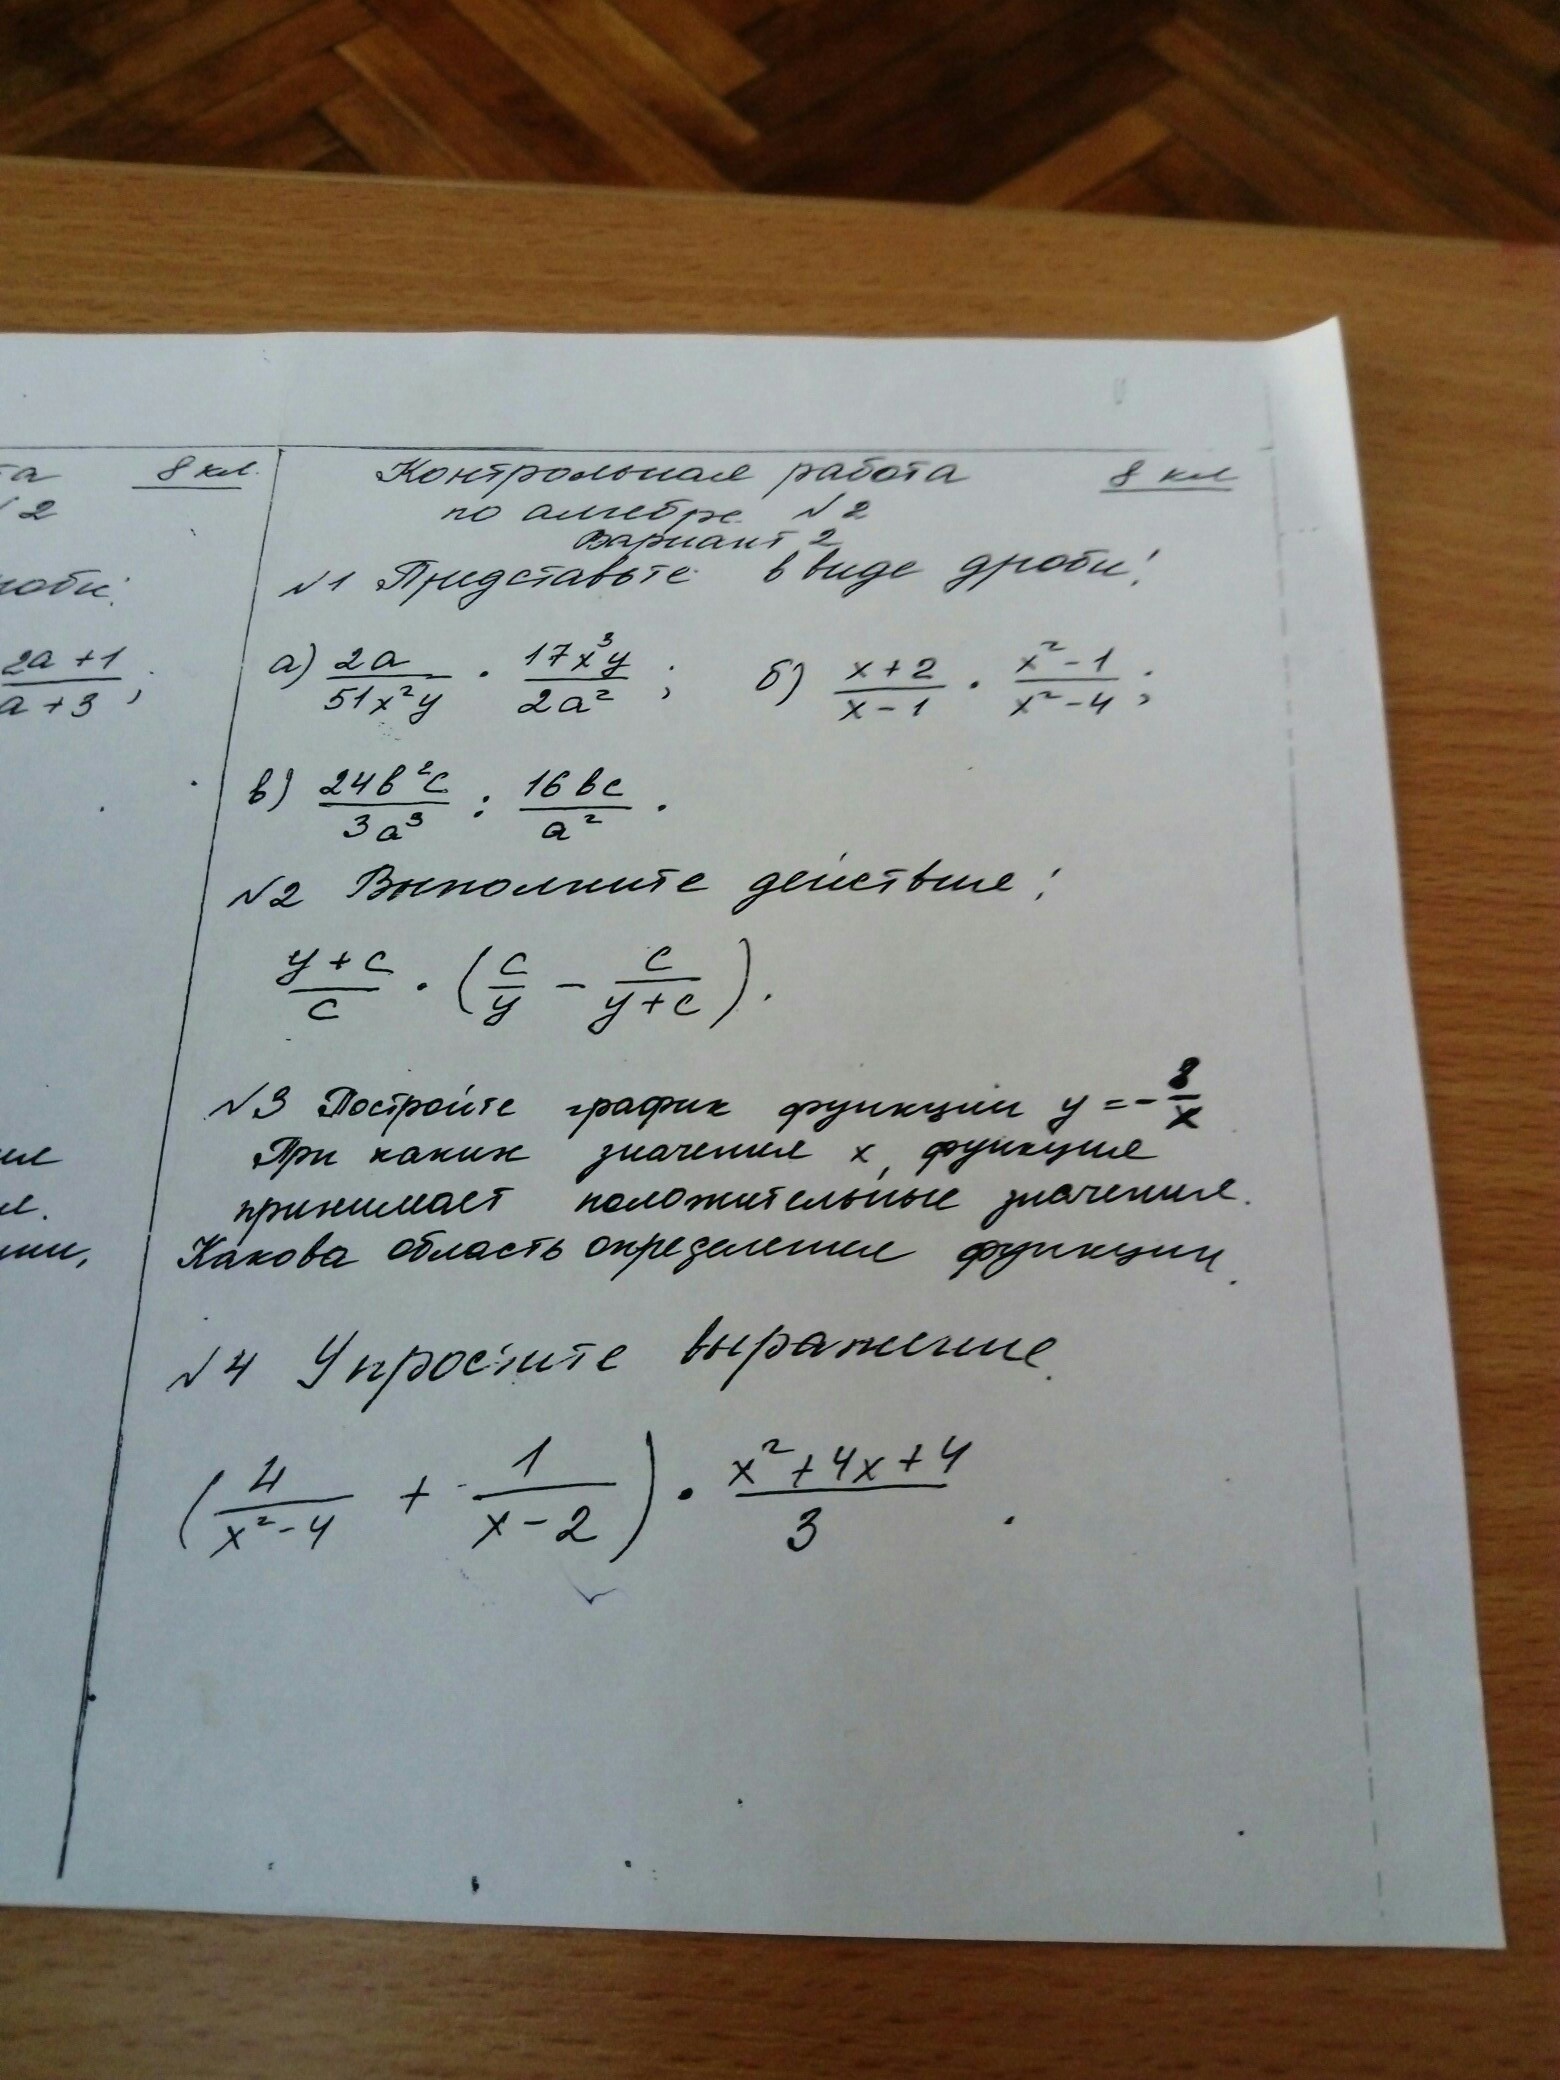 та 8 кл.
№2
роби:
2a+1
a+3 ;
Контрольная работа 8 кл
по алгебре №2
Вариант 2
№1 Представьте в виде дроби:
а) 2a/51x²y · 17x³y/2a² ; б) x+2/x-1 · x²-1/x²-4 ;
в) 24b²c/3a³ : 16bc/a² .
№2 Выполните действие:
y+c/c · (c/y - c/y+c).
№3 Постройте график функции y = -8/x
При каких значения x, функция
принимает положительные значения.
Какова область определения функции.
№4 Упростите выражение.
(4/x²-4 + 1/x-2) · x²+4x+4/3 .